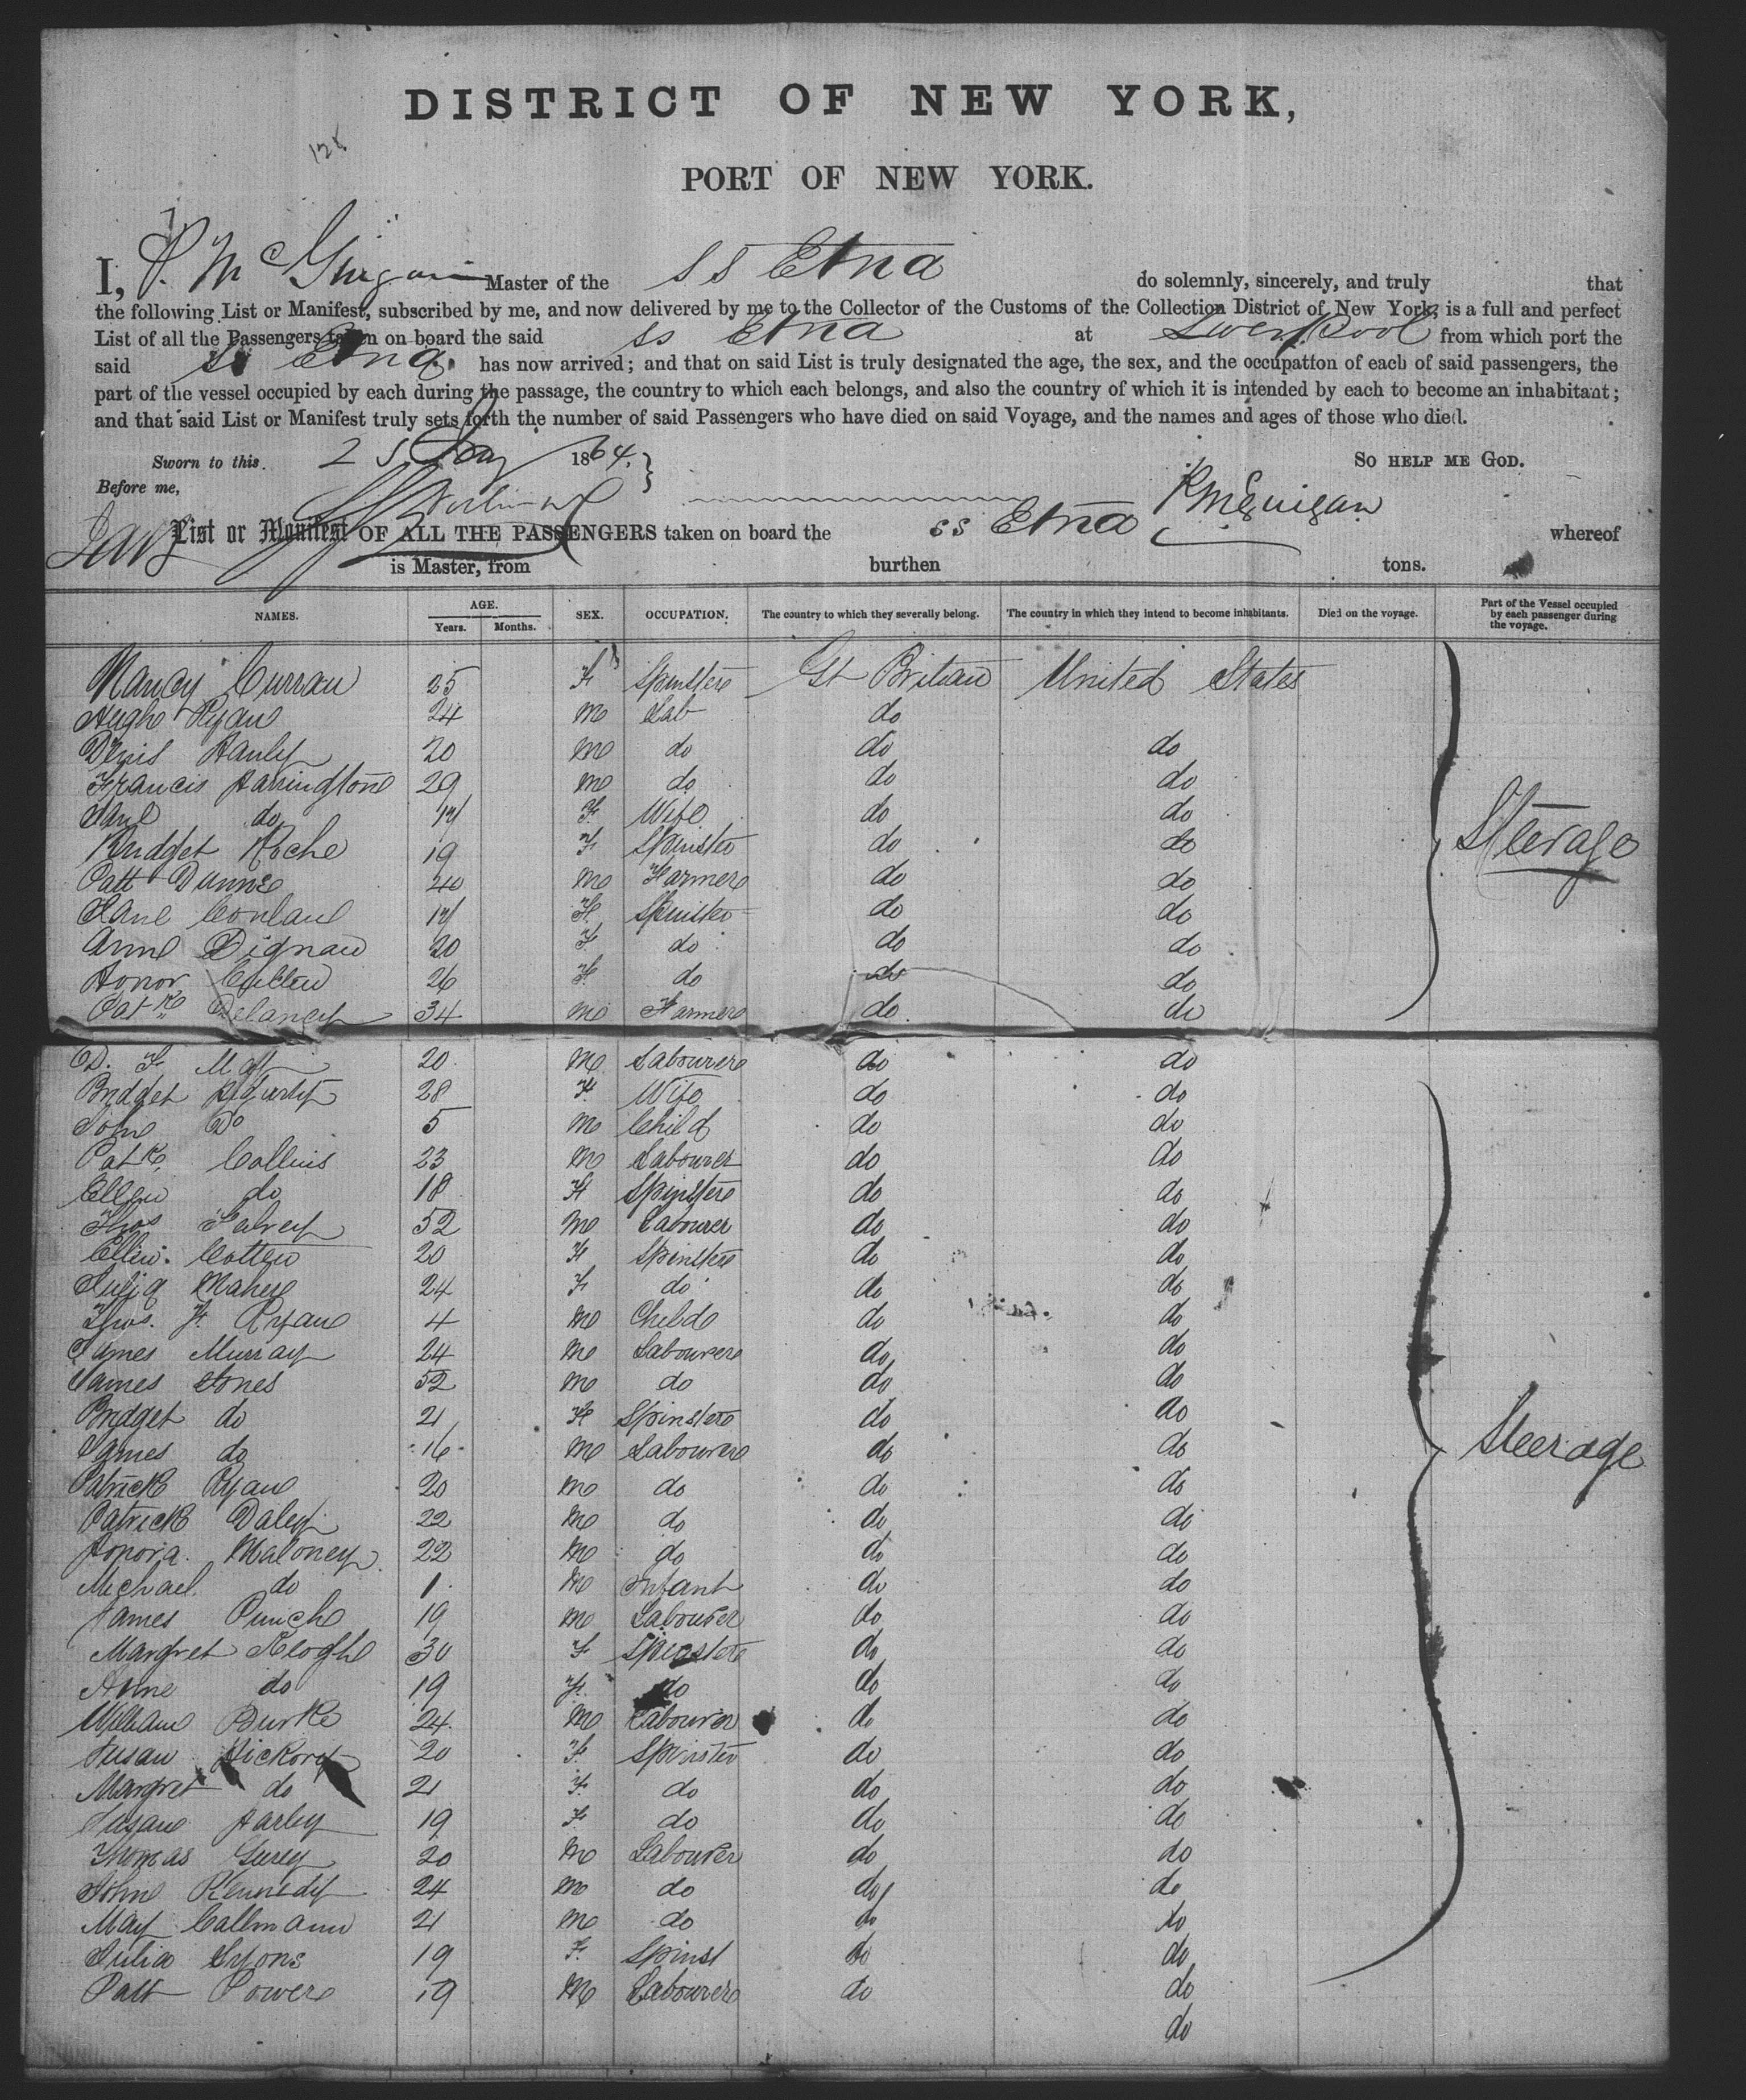 DISTRICT OF NEW YORK,
PORT OF NEW YORK.
I, P. McGuigan Master of the SS Etna do solemnly, sincerely, and truly that
the following List or Manifest, subscribed by me, and now delivered by me to the Collector of the Customs of the Collection District of New York, is a full and perfect
List of all the Passengers taken on board the said ss Etna at Liverpool from which port the
said ss Etna has now arrived; and that on said List is truly designated the age, the sex, and the occupation of each of said passengers, the
part of the vessel occupied by each during the passage, the country to which each belongs, and also the country of which it is intended by each to become an inhabitant;
and that said List or Manifest truly sets forth the number of said Passengers who have died on said Voyage, and the names and ages of those who died.
Sworn to this 1864. SO HELP ME GOD.
Before me, P McGuigan
List or Manifest OF ALL THE PASSENGERS taken on board the ss Etna whereof
is Master, from burthen tons.
NAMES. AGE. Years. Months. SEX. OCCUPATION. The country to which they severally belong. The country in which they intend to become inhabitants. Died on the voyage. Part of the Vessel occupied by each passenger during the voyage.
Nancy Curran 25 F Spinster Gt Britian United States
Hugh Ryan 24 M Lab do
Denis Hanly 20 M do do do
Francis Harringtone 29 M do do do
Jane do 17 F Wife do do
Bridget Roche 19 F Spinster do do Steerage
Patt Dunne 40 M Farmer do do
Jane Conlan 17 F Spinster do do
Anne Dignan 20 F do do do
Honor Cullen 26 F do do do
Patk Delaney 34 M Farmer do do
D. F 20 M Labourer do do
Bridget 28 F Wife do do
John Do 5 M Child do do
Patk Collins 23 M Labourer do do
Ellen do 18 F Spinster do do
Thos 52 M Labourer do do
Ellen Cotten 20 F Spinster do do
Julia Maher 24 F do do do
Thos. F. Ryan 4 M Child do do
James Murray 24 M Labourer do do
James Jones 52 M do do do
Bridget do 21 F Spinster do do
James do 16 M Labourer do do Steerage
Patrick Ryan 20 M do do do
Patrick Daley 22 M do do do
Honora Maloney 22 M do do do
Michael do 1 M Infant do do
James Punch 19 M Labourer do do
Margret Keoghe 30 F Spinster do do
Anne do 19 F do do do
William Burke 24 M Labourer do do
Susan Hickory 20 F Spinster do do
Margret do 21 F do do do
Susan Harley 19 F do do do
Thomas 20 M Labourer do do
John Kennedy 24 M do do do
May Callmann 21 M do do do
Julia Lyons 19 F Spinst do do
Patt Power 19 M Labourer do do
do